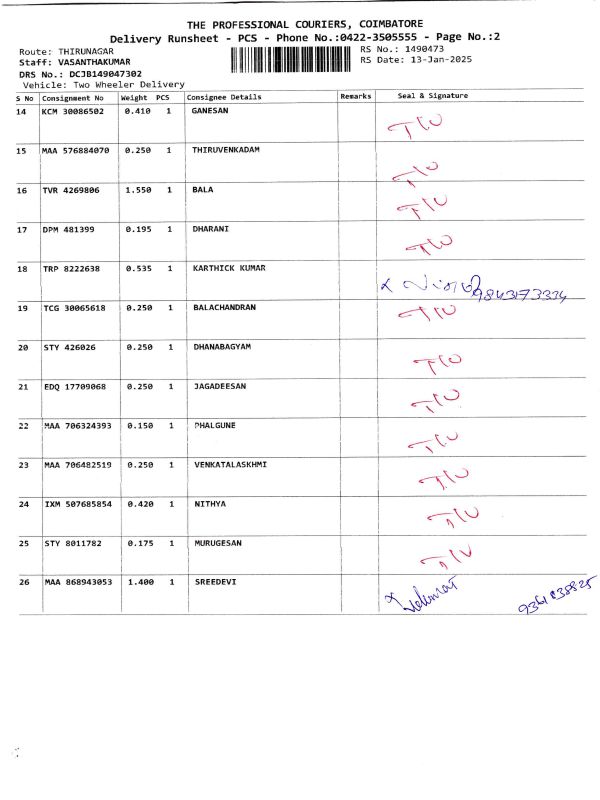 THE PROFESSIONAL COURIERS, COIMBATORE
Delivery Runsheet - PCS - Phone No.:0422-3505555 - Page No.:2
Route: THIRUNAGAR RS No.: 1490473
Staff: VASANTHAKUMAR RS Date: 13-Jan-2025
DRS No.: DCJB149047302
Vehicle: Two Wheeler Delivery
S No Consignment No Weight PCS Consignee Details Remarks Seal & Signature
14 KCM 30086502 0.410 1 GANESAN
15 MAA 576884070 0.250 1 THIRUVENKADAM
16 TVR 4269806 1.550 1 BALA
17 DPM 481399 0.195 1 DHARANI
18 TRP 8222638 0.535 1 KARTHICK KUMAR
19 TCG 30065618 0.250 1 BALACHANDRAN
20 STY 426026 0.250 1 DHANABAGYAM
21 EDQ 17709068 0.250 1 JAGADEESAN
22 MAA 706324393 0.150 1 PHALGUNE
23 MAA 706482519 0.250 1 VENKATALASKHMI
24 IXM 507685854 0.420 1 NITHYA
25 STY 8011782 0.175 1 MURUGESAN
26 MAA 868943053 1.400 1 SREEDEVI